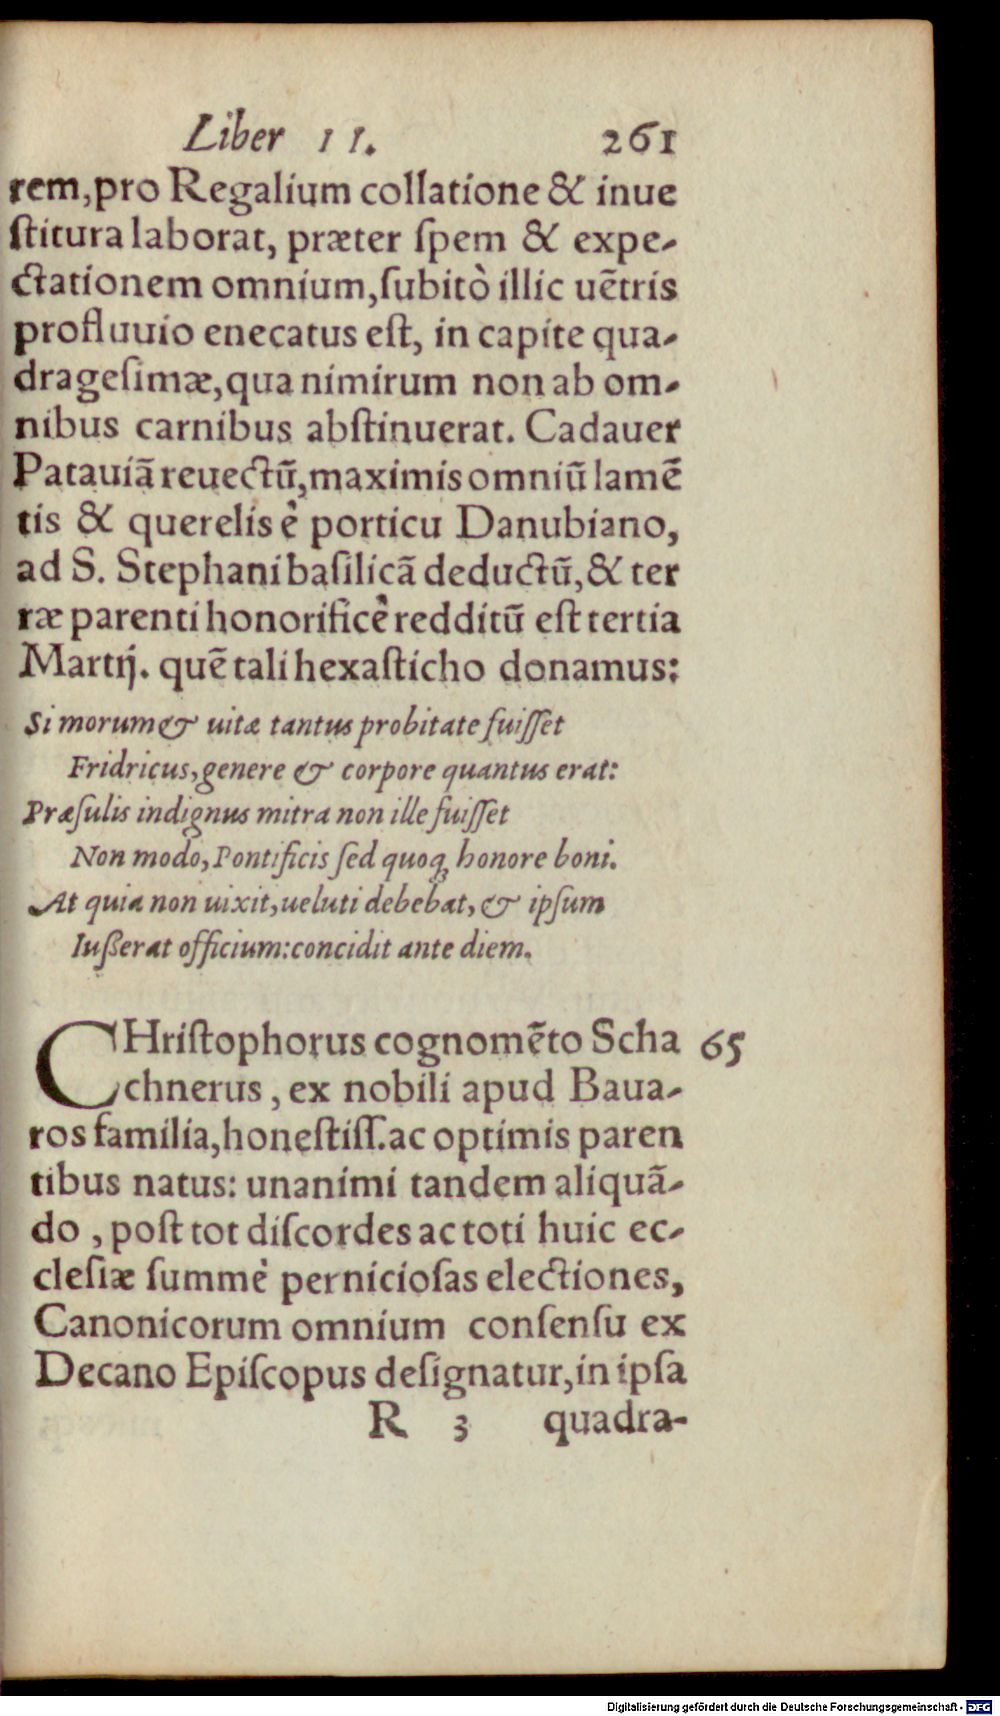 Liber 11. 261
rem,pro Regalium collatione & inue
ſtitura laborat, præter ſpem & expe-
ctationem omnium,ſubitò illic uẽtris
profluuio enecatus eſt, in capite qua-
drageſimæ,qua nimirum non ab om-
nibus carnibus abſtinuerat. Cadauer
Patauiã reuectũ,maximis omniũ lamẽ
tis & querelis è porticu Danubiano,
ad S. Stephani baſilicã deductũ,& ter
ræ parenti honorificè redditũ eſt tertia
Martij. quẽ tali hexaſticho donamus:
Si morum & uitæ tantus probitate fuiſſet
Fridricus,genere & corpore quantus erat:
Præſulis indignus mitra non ille fuiſſet
Non modo,Pontificis ſed quoq; honore boni.
At quia non uixit,ueluti debebat,& ipſum
Iußerat officium:concidit ante diem.
CHriſtophorus cognomẽto Scha 65
chnerus, ex nobili apud Baua-
ros familia,honeſtiſſ.ac optimis paren
tibus natus: unanimi tandem aliquã-
do , poſt tot diſcordes ac toti huic ec-
cleſiæ ſummè pernicioſas electiones,
Canonicorum omnium conſenſu ex
Decano Epiſcopus deſignatur,in ipſa
R 3 quadra-
Digitalisierung gefördert durch die Deutsche Forschungsgemeinschaft - DFG